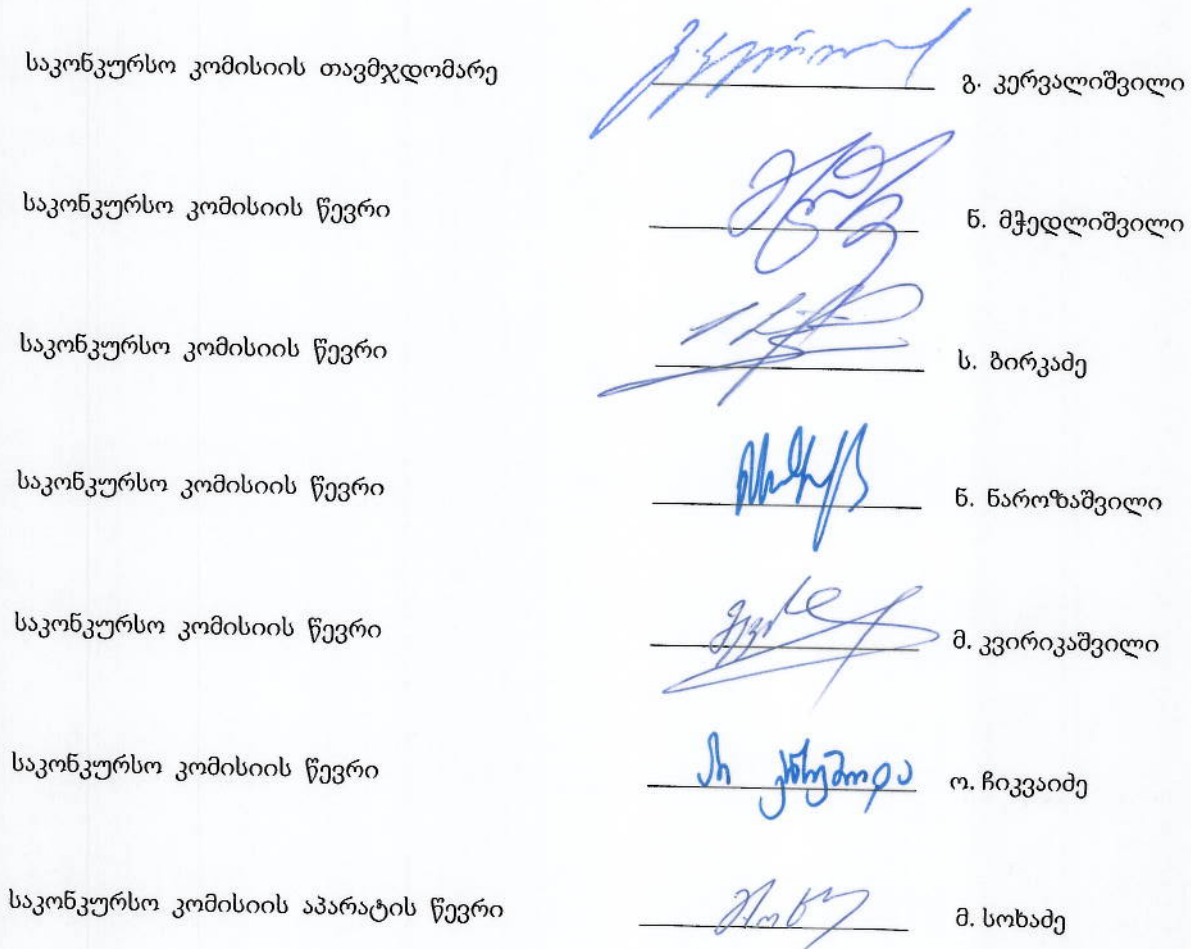 საკონკურსო კომისიის თავმჯდომარე გ. კერვალიშვილი
საკონკურსო კომისიის წევრი ნ. მჭედლიშვილი
საკონკურსო კომისიის წევრი ს. ბირკაძე
საკონკურსო კომისიის წევრი ნ. ნაროზაშვილი
საკონკურსო კომისიის წევრი მ. კვირიკაშვილი
საკონკურსო კომისიის წევრი ო. ჩიკვაიძე
საკონკურსო კომისიის აპარატის წევრი მ. სოხაძე